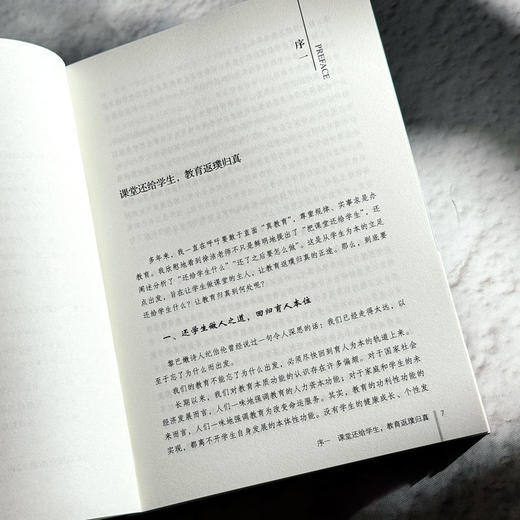 序一
PREFACE
课堂还给学生，教育返璞归真
多年来，我一直在呼吁要敢于直面“真教育”，尊重规律、实事求是办
教育。我欣慰地看到徐洁老师不只是鲜明地提出了“把课堂还给学生”，还
阐述分析了“还给学生什么”“还了之后要怎么做”。这是从学生为本的立足
点出发，旨在让学生做课堂的主人，让教育返璞归真的正途。那么，到底要
还给学生什么？让教育归真到何处呢？
一、还学生做人之道，回归育人本位
黎巴嫩诗人纪伯伦曾经说过一句令人深思的话：我们已经走得太远，以
至于忘了为什么而出发。
我们的教育不能忘了为什么出发，必须尽快回到育人为本的轨道上来。
长期以来，我们对教育本质功能的认识存在许多偏颇。对于国家社会
经济发展而言，人们一味地强调教育的人力资本功能；对于家庭和学生的未
来而言，人们一味地强调教育为改变命运服务。其实，教育的功利性功能的
实现，都离不开学生自身发展的本体性功能。没有学生的健康成长、个性发
序一 课堂还给学生，教育返璞归真
7